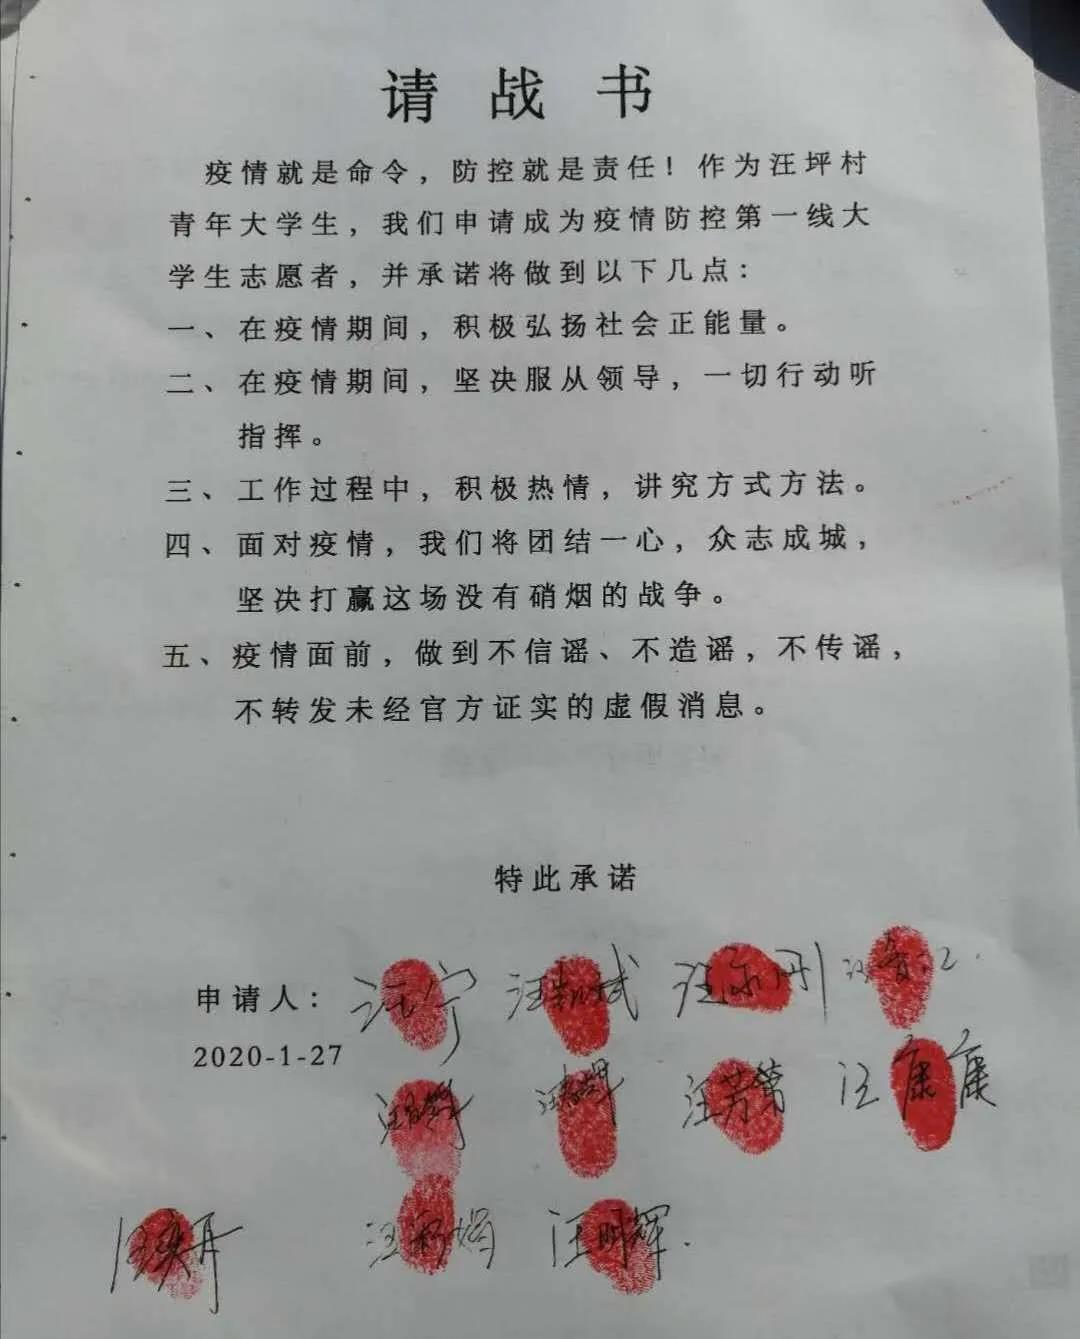 请战书
疫情就是命令，防控就是责任！作为汪坪村
青年大学生，我们申请成为疫情防控第一线大
学生志愿者，并承诺将做到以下几点：
一、在疫情期间，积极弘扬社会正能量。
二、在疫情期间，坚决服从领导，一切行动听
指挥。
三、工作过程中，积极热情，讲究方式方法。
四、面对疫情，我们将团结一心，众志成城，
坚决打赢这场没有硝烟的战争。
五、疫情面前，做到不信谣、不造谣，不传谣，
不转发未经官方证实的虚假消息。
特此承诺
申请人： 汪宁 汪 汪 汪
2020-1-27
汪 汪 汪芳 汪康康
汪 汪 汪明辉